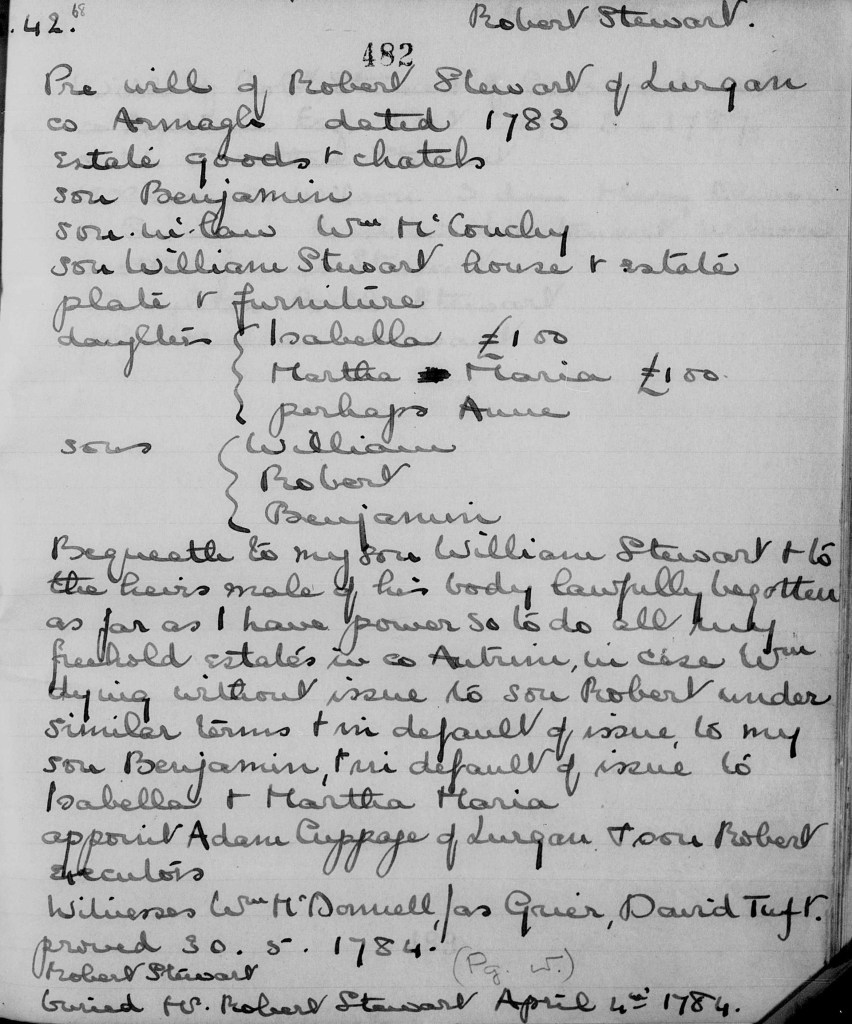 42.68 Robert Stewart.
482
Pre will of Robert Stewart of Lurgan
co Armagh dated 1783
Estate goods & chatels
son Benjamin
son-in-law Wm McConchy
son William Stewart house & estate
plate & furniture
daughters { Isabella £100
Martha Maria £100.
perhaps Anne
sons { William
Robert
Benjamin
Bequeath to my son William Stewart & to
the heirs male of his body lawfully begotten
as far as I have power so to do all my
freehold estates in co Antrim, in case Wm
dying without issue to son Robert under
similar terms & in default of issue, to my
son Benjamin, & in default of issue to
Isabella & Martha Maria
appoint Adam Cuppage of Lurgan & son Robert
executors
Witnesses Wm McDonnell, Jas Grier, David Tuft.
proved 30. 5. 1784.
(Pg. W.)
Robert Stewart
buried Mr. Robert Stewart April 4th 1784.